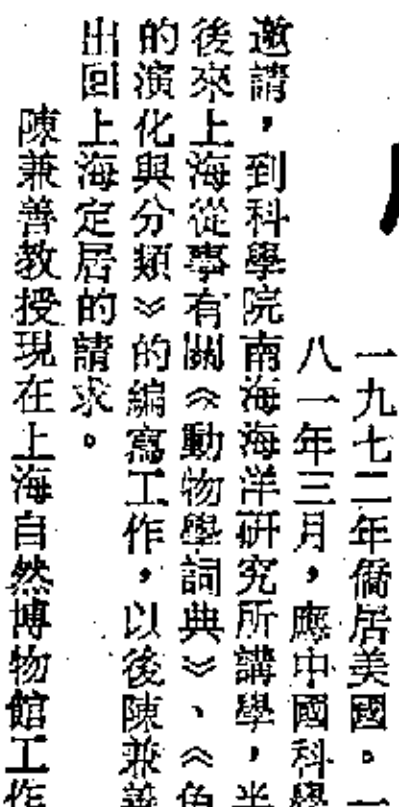 一九七二年僑居美國。一
八一年三月，應中國科學
邀請，到科學院南海海洋研究所講學，半
後來上海從事有關《動物學詞典》、《魚
的演化與分類》的編寫工作，以後陳兼善
出回上海定居的請求。
陳兼善教授現在上海自然博物館工作